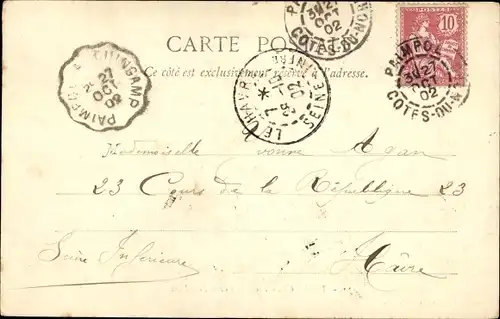 CARTE PO
Ce côté est exclusivement réservé à l'adresse.
POSTES
10
PAIMPOL
27
OCT
02
COTES-DU-N
COTES-DU-NORD
27
OCT
02
GUINGAMP
27
OCT
02
LE HAVRE
SEINE INFRE
02
Mademoiselle Yvonne
23 Cours de la République 23
Seine Inférieure Hâvre